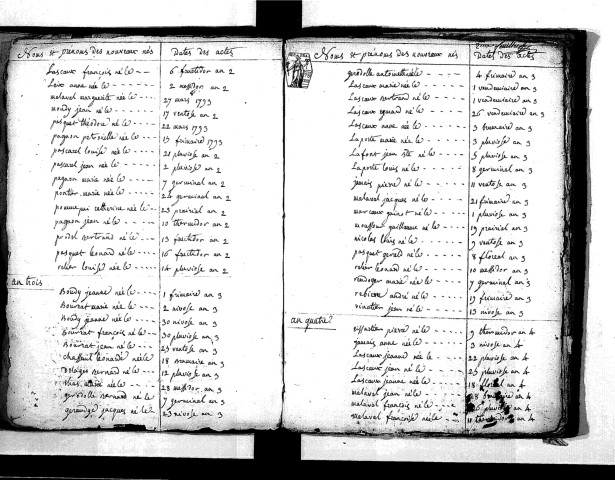 Noms et prénoms des nouveaux nés Dates des actes
Lascaux françois né le 6 fructidor an 2
Leix anne née le 2 messidor an 2
malaval marguerite née le 27 mars 1793
moudy jean né le 17 ventose an 2
pasquet théodore né le 22 mars 1793
pagnon petronille née le 13 frimaire 1793
pascarel louise née le 21 pluviose an 2
pascarel jean né le 2 pluviose an 2
pagnon marie née le 7 germinal an 2
marie née le 22 germinal an 2
catherine née le 23 prairial an 2
pagnon jean né le 10 thermidor an 2
bertrand né le 13 fructidor an 2
pasquet léonard né le 16 fructidor an 2
relier louise née le 14 pluviose an 2
an trois
Boudy jeanne née le 1 frimaire an 3
Bourrat marie née le 2 nivose an 3
Boudy jeanne née le 30 nivose an 3
Bourrat françois né le 30 pluviose an 3
Bourrat jean né le 23 ventose an 3
léonarde née le 18 brumaire an 3
bernard né le 12 pluviose an 3
marie née le 28 messidor an 3
bernard né le 7 germinal an 3
jacques né le 23 nivose an 3
Noms et prénoms des nouveaux nés Dates des actes
antoinette née le 4 frimaire an 3
Lascaux marie née le 1 vendemiaire an 3
Lascaux bertrand né le 1 vendemiaire an 3
Lascoux né le 25 vendemiaire an 3
Lascoux anne née le 3 brumaire an 3
Laporte marie née le 3 pluviose an 3
Lafont jean né le 5 pluviose an 3
Laporte louis né le 8 germinal an 3
jamais pierre né le 11 ventose an 3
malaval jacques né le 21 frimaire an 3
né le 1 pluviose an 3
guillaume né le 19 prairial an 3
nicolas louis né le 9 ventose an 3
pasquet gerald né le 8 floreal an 3
relier léonard né le 10 messidor an 3
marie née le 7 germinal an 3
andré né le 19 frimaire an 3
jean né le 13 nivose an 3
an quatre
pierre né le 9 thermidor an 4
jamais anne née le 3 nivose an 4
Lascaux jeanne née le 22 pluviose an 4
Lascaux jean né le 25 pluviose an 4
Lascaux jeanne née le 18 floreal an 4
malaval jean né le 28 brumaire an 4
malaval françois né le pluviose an 4
malaval françoise née le 11 thermidor an 4